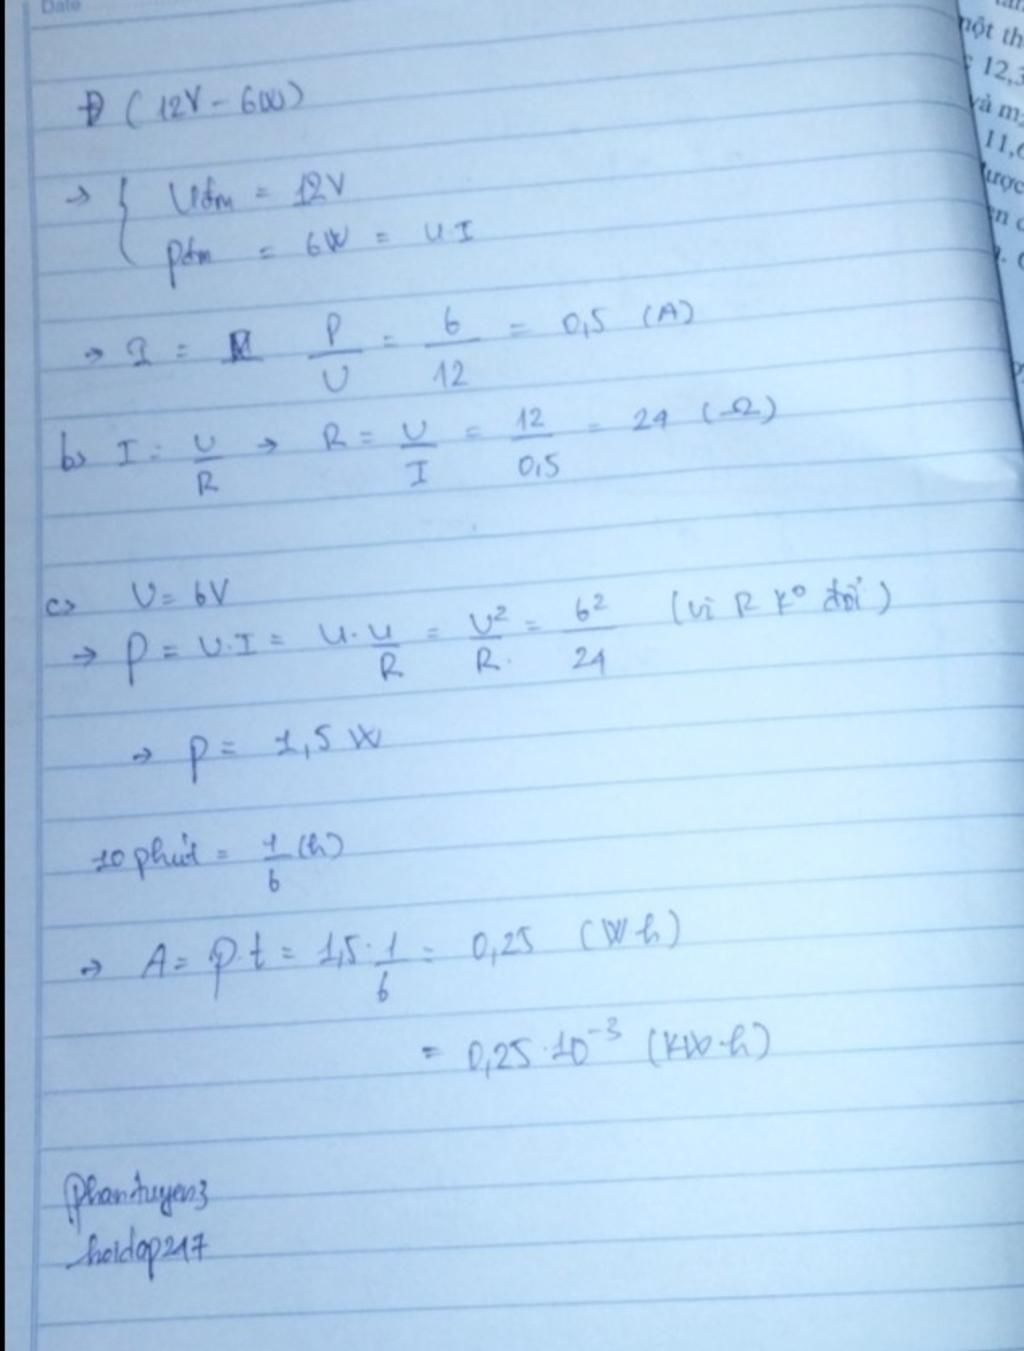 Date
Đ (12V - 6W)
→ { Uđm = 12V
Pđm = 6W = U.I
→ I = P/U = 6/12 = 0,5 (A)
b> I = U/R → R = U/I = 12/0,5 = 24 (Ω)
c> U = 6V
→ P = U.I = U.U/R = U²/R = 6²/24 (vì R k° đổi)
→ P = 1,5 W
10 phút = 1/6 (h)
→ A = P.t = 1,5.1/6 = 0,25 (W.h)
= 0,25.10⁻³ (KW.h)
phantuyen3
hoidap247
một th
12,3
và m
11,6
được